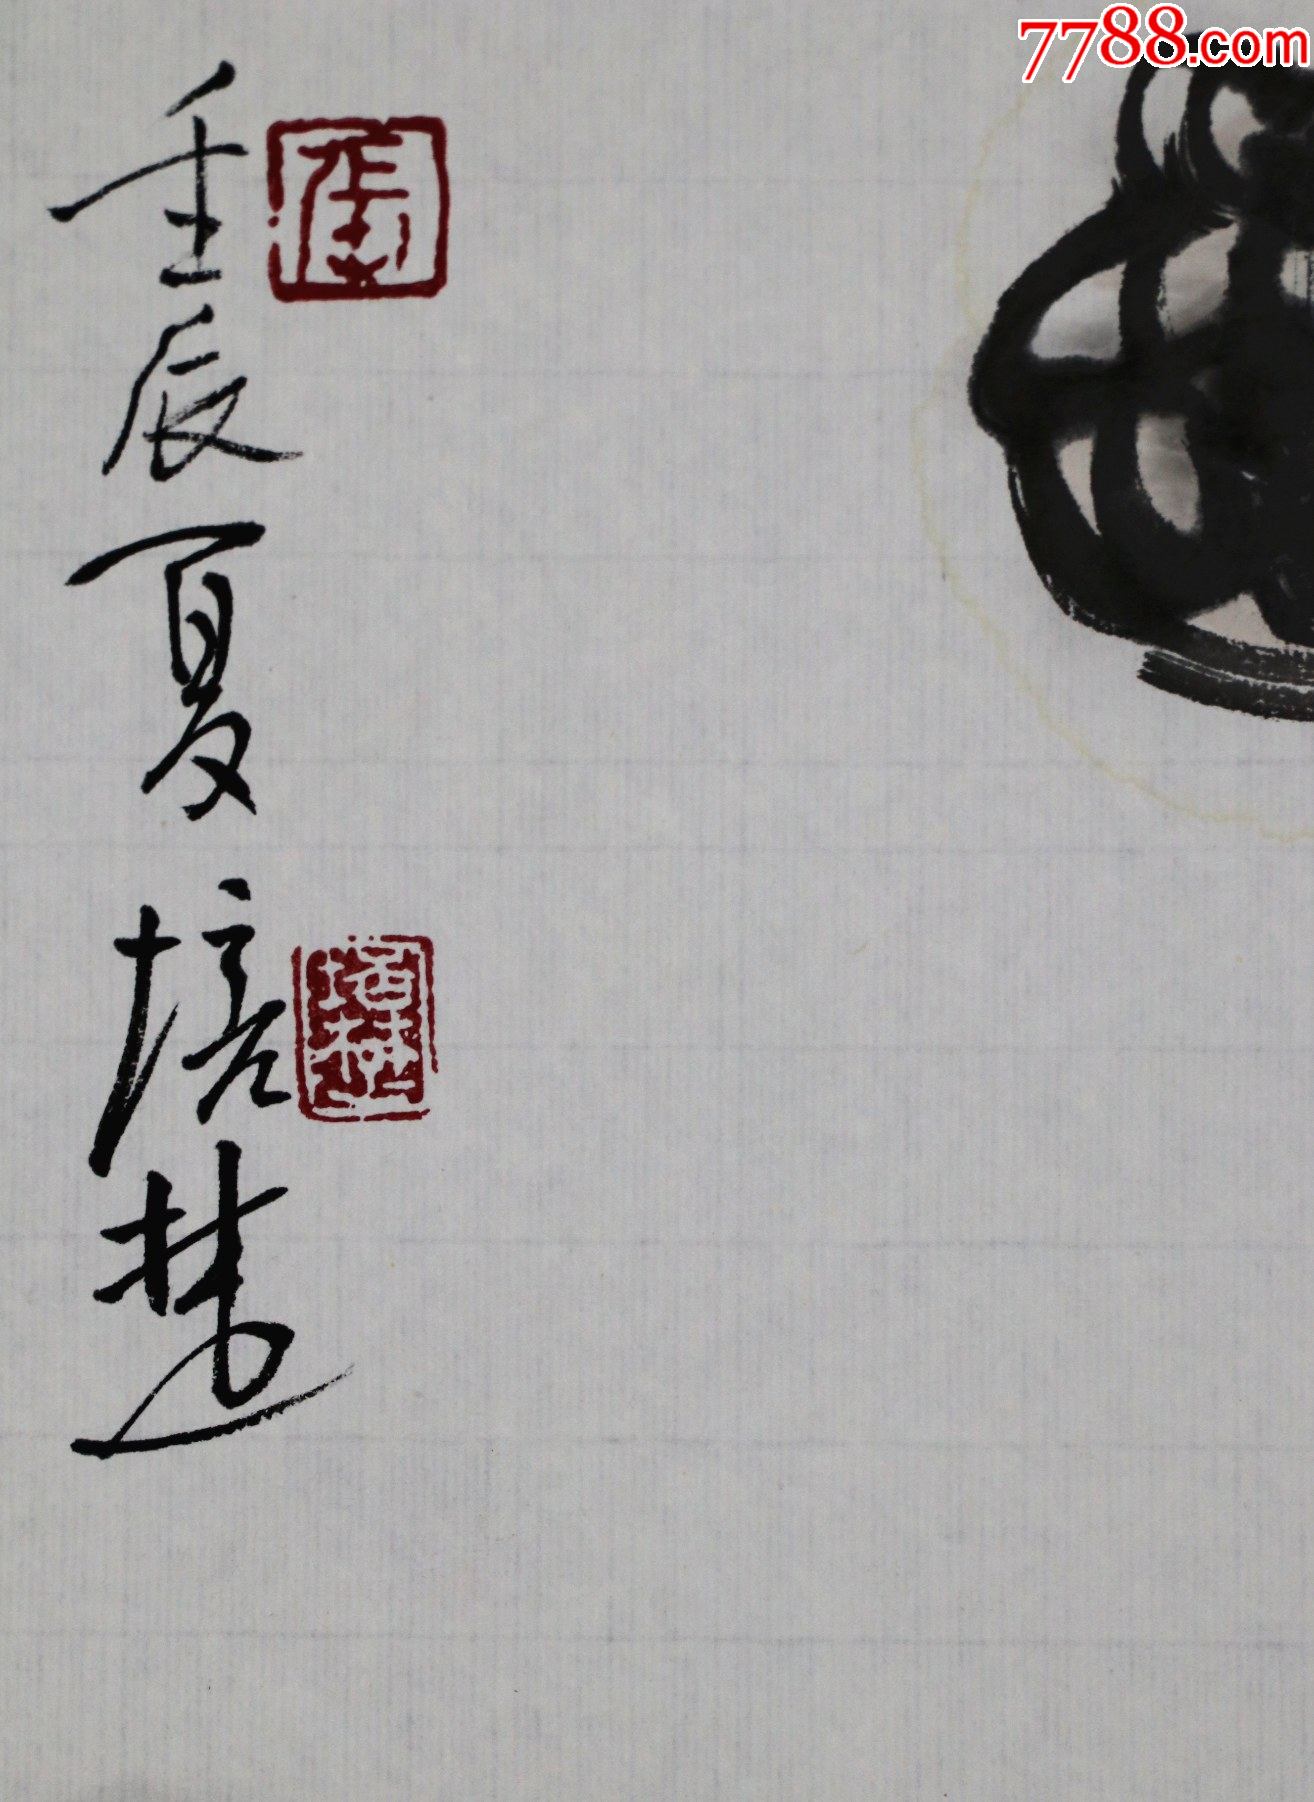 7788.com
壬辰夏培楚